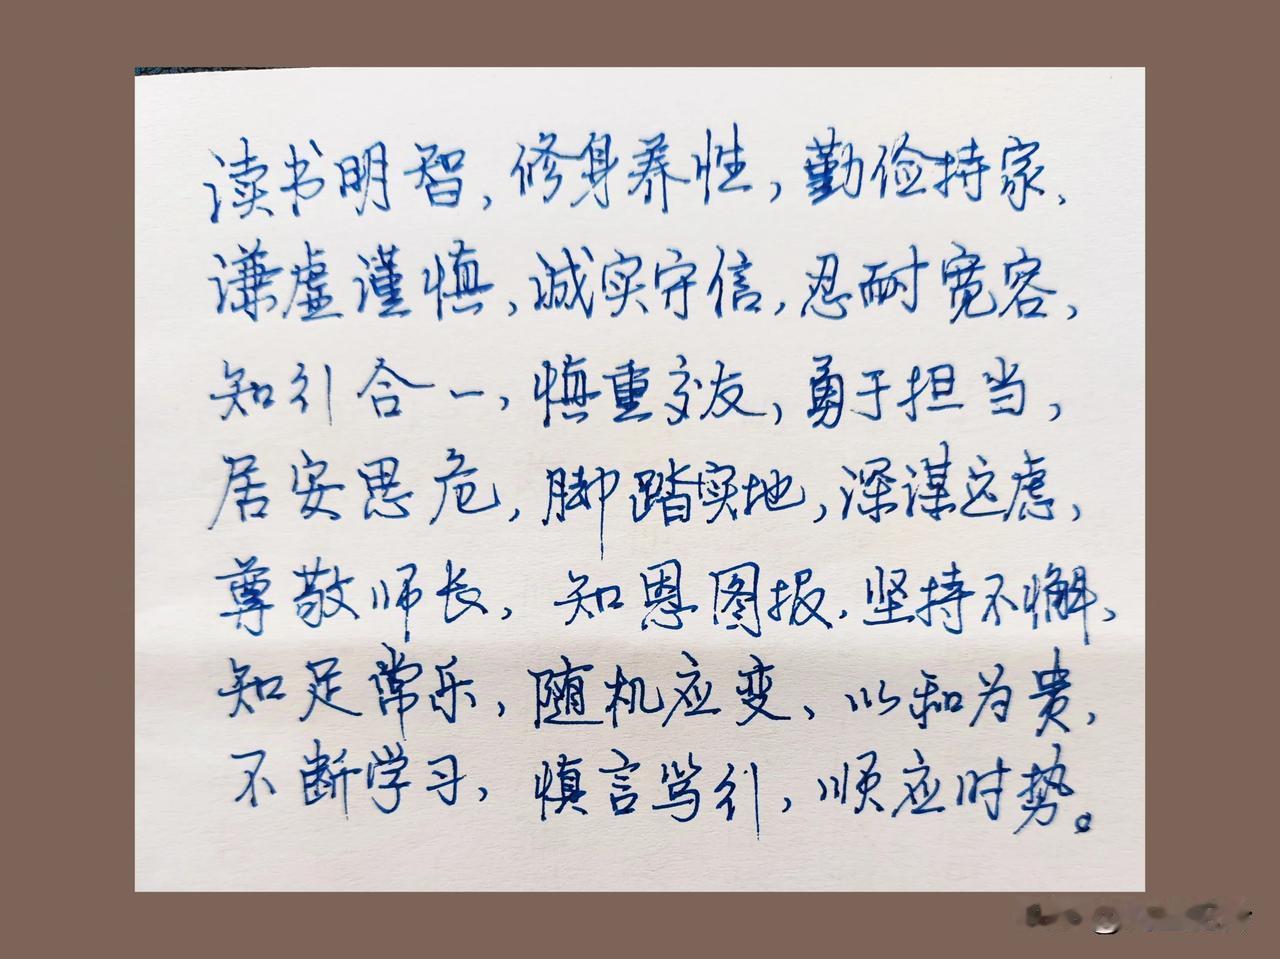 读书明智,修身养性,勤俭持家,
谦虚谨慎,诚实守信,忍耐宽容,
知行合一,慎重交友,勇于担当,
居安思危,脚踏实地,深谋远虑,
尊敬师长,知恩图报,坚持不懈,
知足常乐,随机应变、以和为贵,
不断学习,慎言笃行,顺应时势。